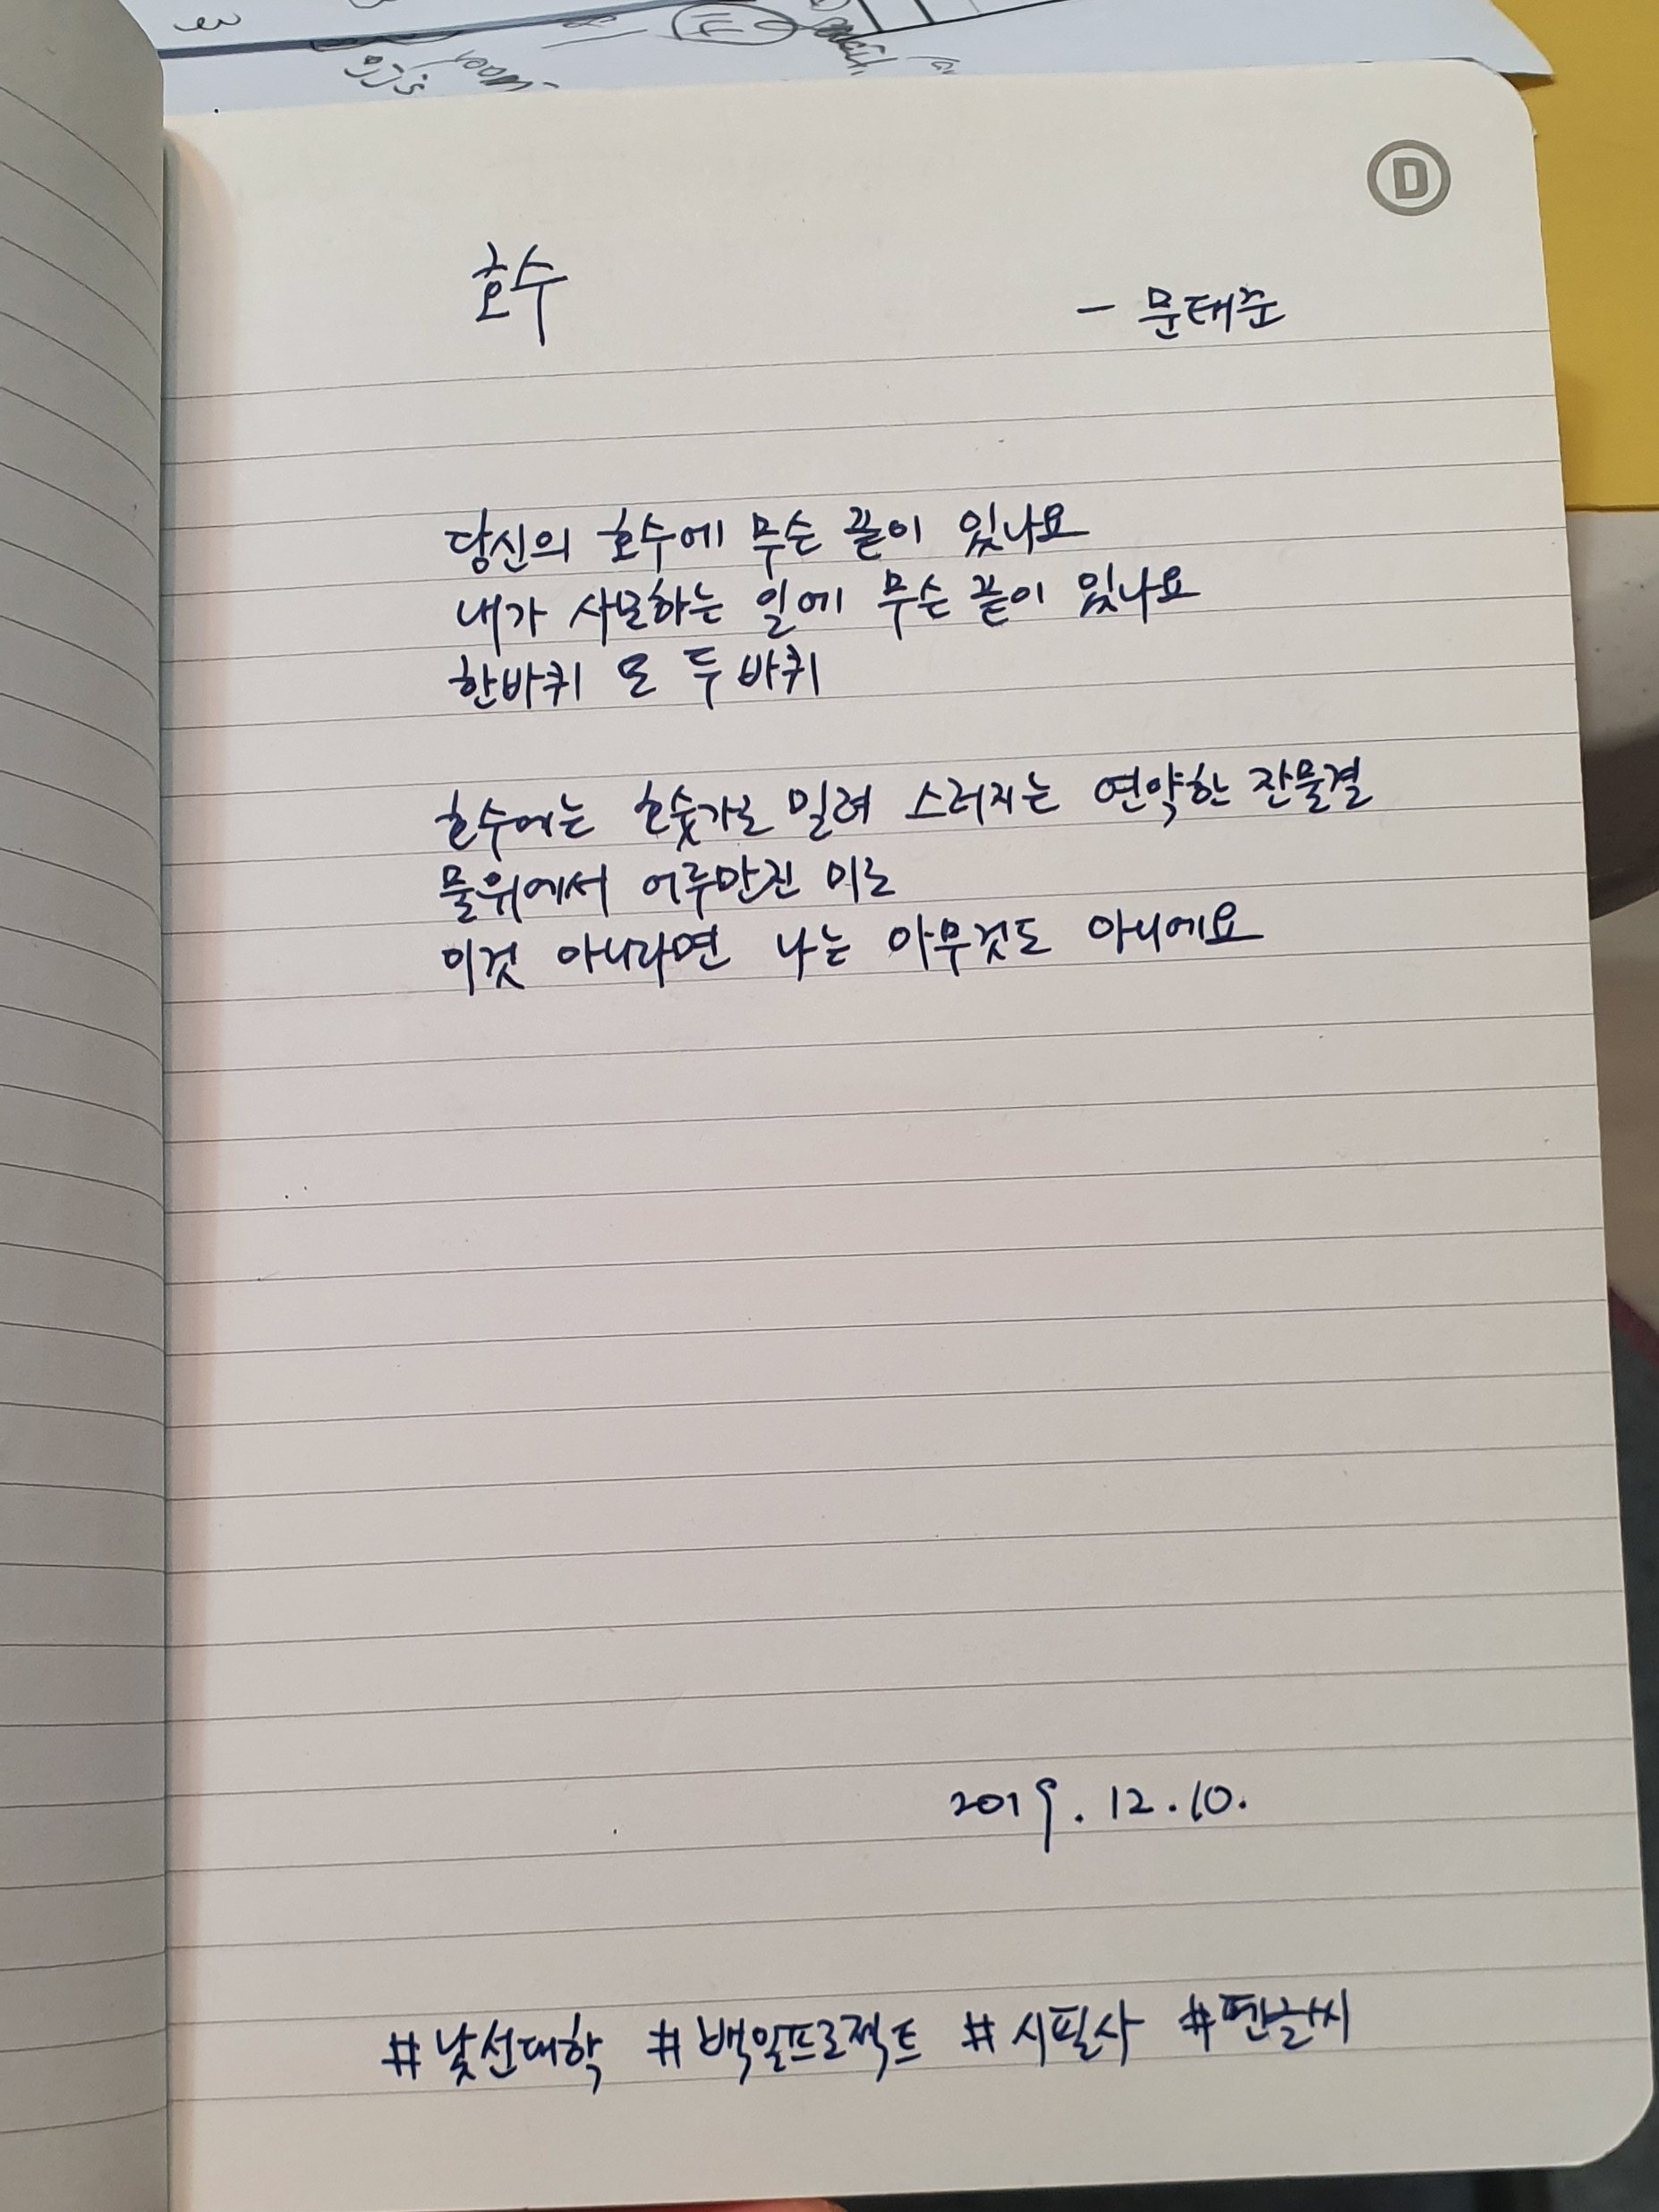 D
호수
- 문태준
당신의 호수에 무슨 끝이 있나요
내가 사모하는 일에 무슨 끝이 있나요
한바퀴 또 두바퀴
호수에는 호숫가로 밀려 스러지는 연약한 잔물결
물위에서 어루만진 미로
이것 아니라면 나는 아무것도 아니에요
2019. 12. 10.
#낯선대학 #백일프로젝트 #시필사 #펜글씨